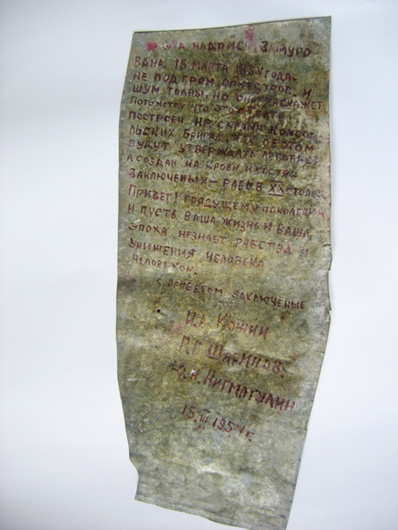 эта надпись замуро
вана 15 марта 1954 года,
не под гром оркестров и
шум толпы. Но она расскажет
потомству что этот
построен не силами комсомо
льских бригад, как об этом
будут утверждать летописи
а создан на крови и костях
заключеных — рабов XX столет.
Привет! грядущему поколению
и пусть ваша жизнь и ваша
эпоха незнает рабства и
унижения человека
человеком.
с приветом заключеные
И.Л. Кожин
Р.Г. Шарипов.
Ю.Н. Нигматулин
15.III 1954 г.